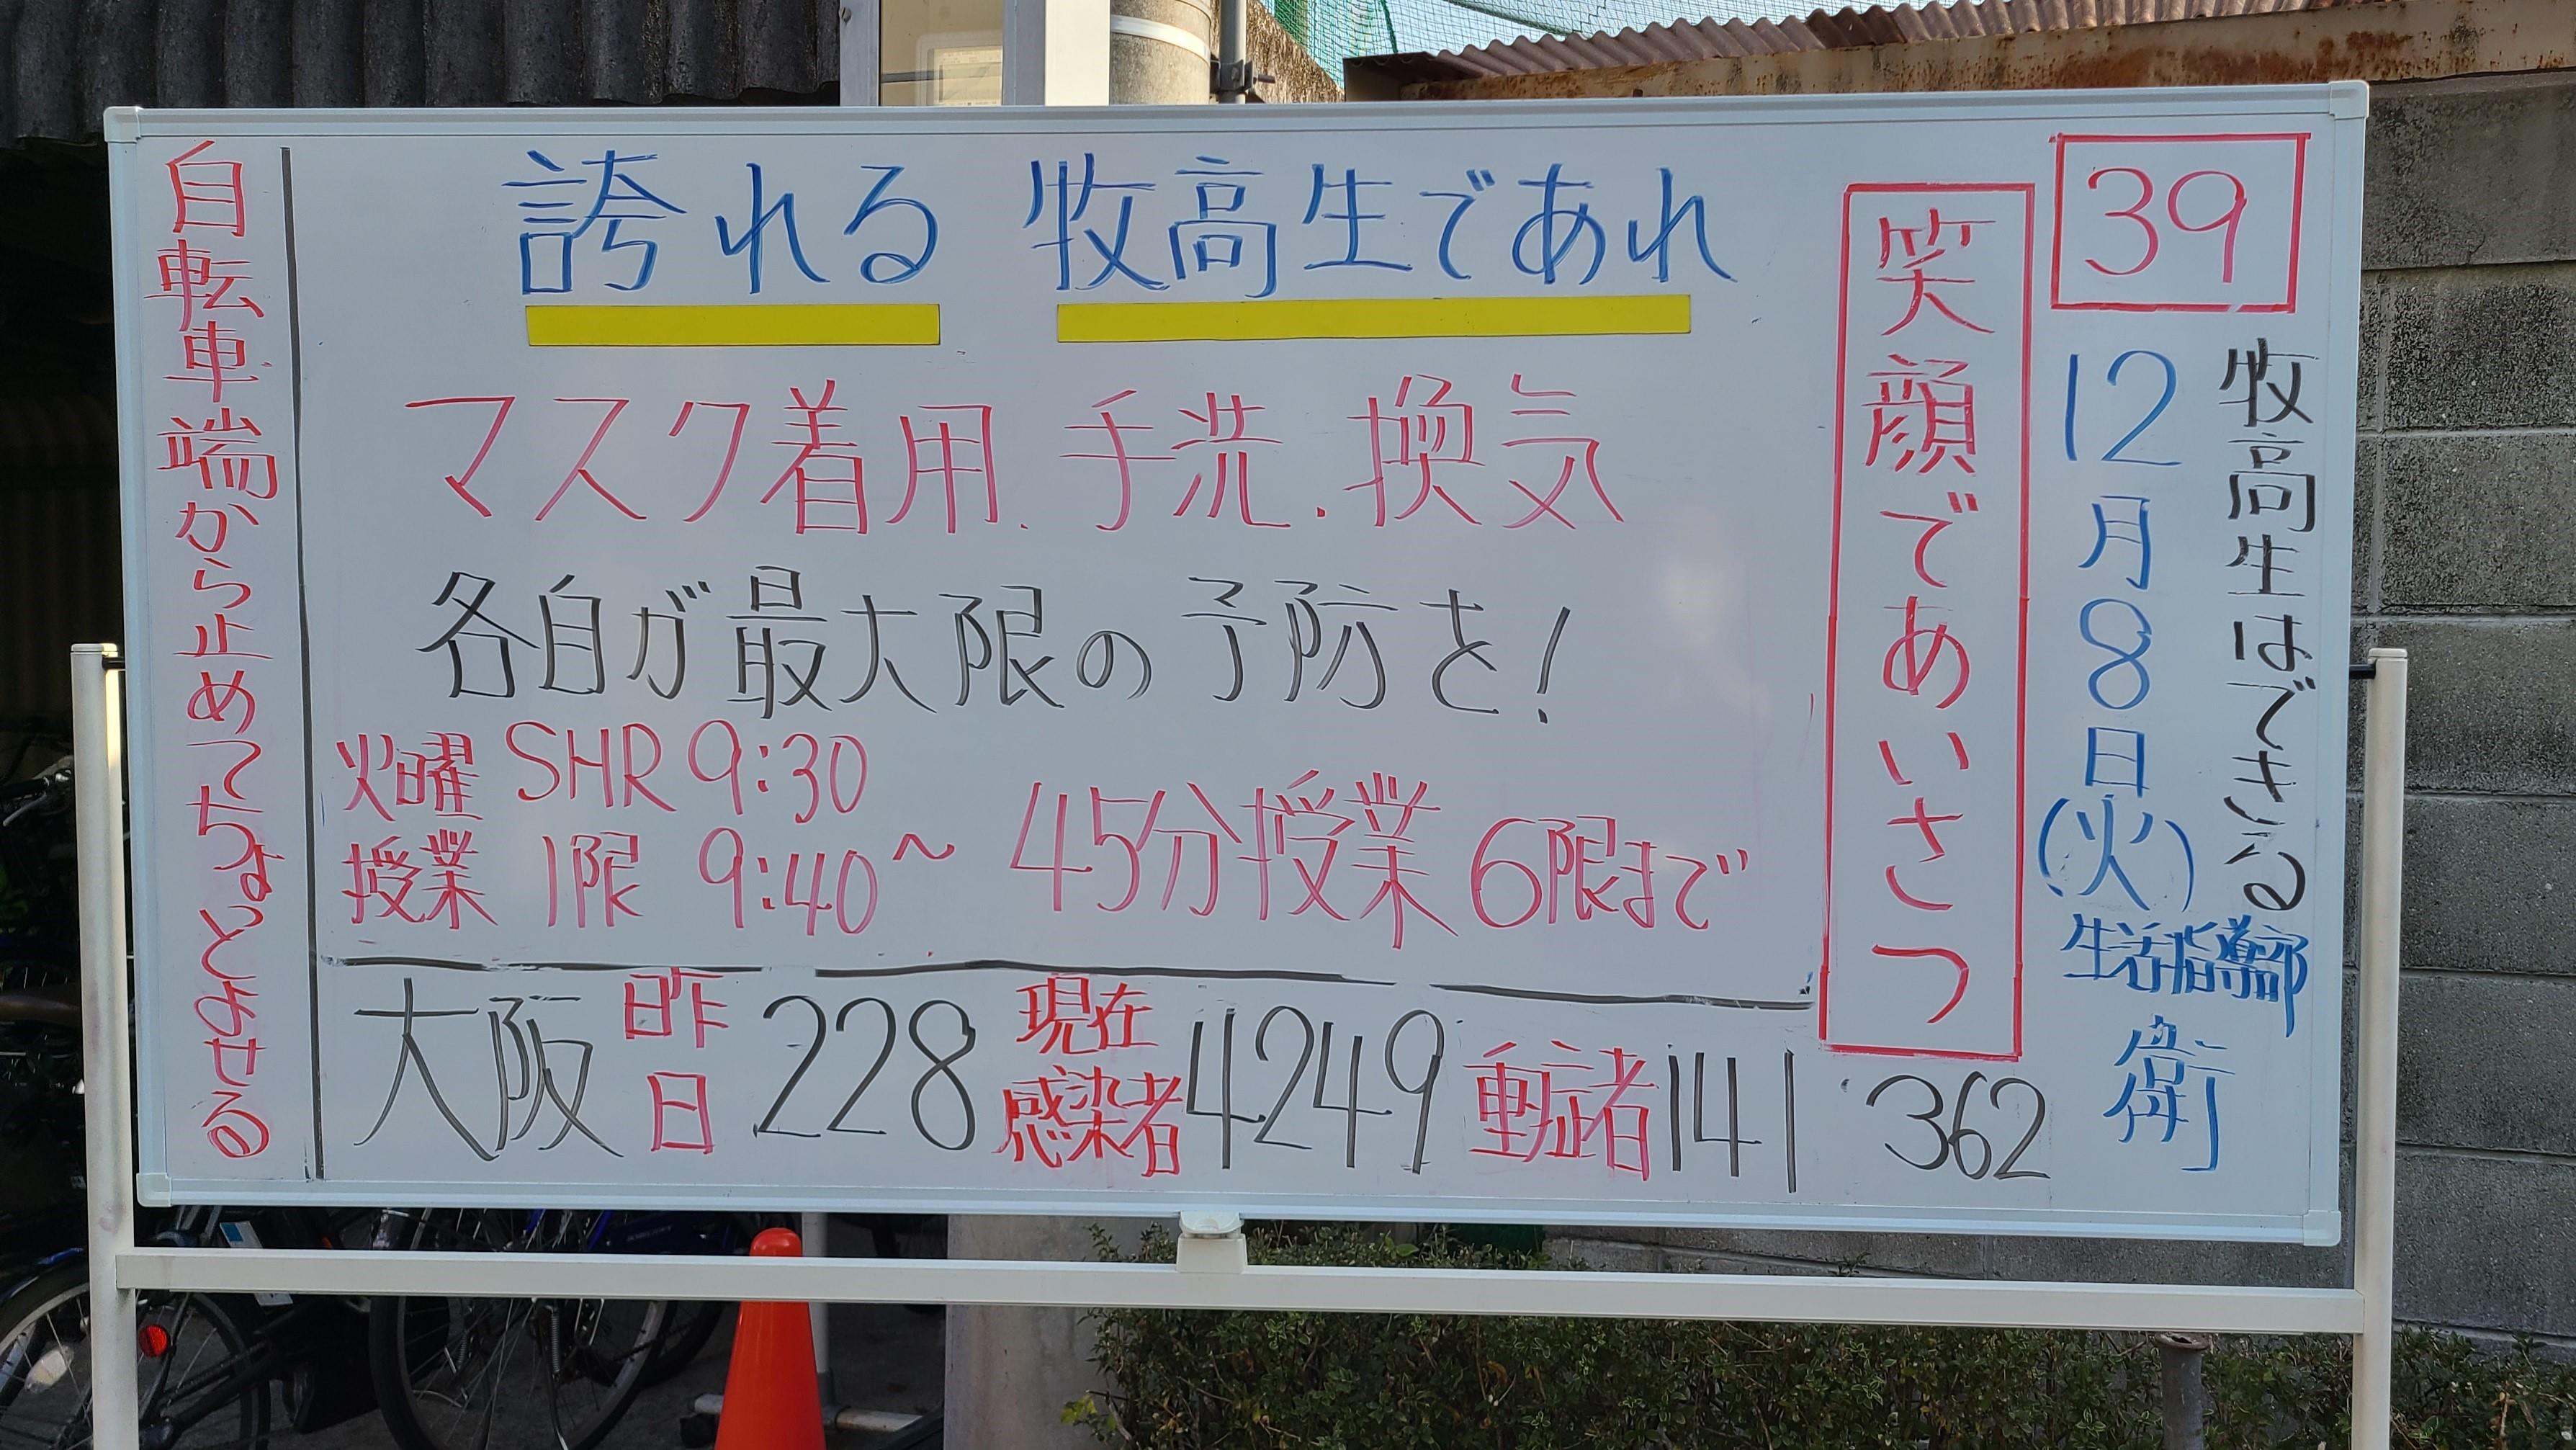 39
牧高生はできる
12月8日(火)
生活指導部
衛
笑顔であいさつ
誇れる 牧高生であれ
マスク着用、手洗、換気
各自が最大限の予防を!
火曜授業 SHR 9:30
1限 9:40〜 45分授業 6限まで
大阪 昨日 228 現在感染者 4249 重症者 141 362
自転車端から止めてちょっとよせる